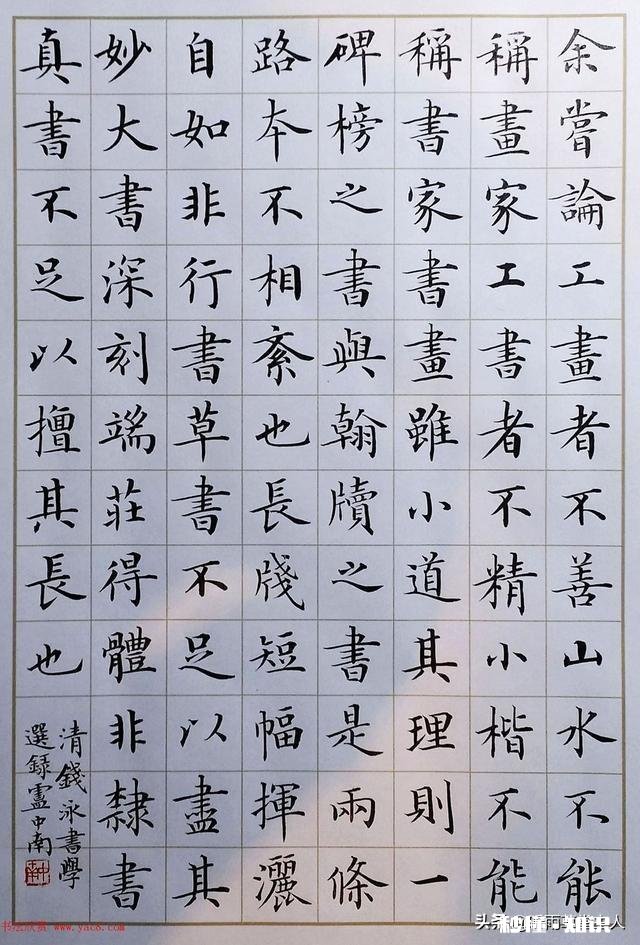 余嘗論工畫者不善山水不能
稱畫家工書者不精小楷不能
稱書家書畫雖小道其理則一
碑榜之書與翰牘之書是兩條
路本不相紊也長牋短幅揮灑
自如非行書草書不足以盡其
妙大書深刻端莊得體非隸書
真書不足以擅其長也
清錢泳書學
選錄盧中南
书法欣赏 www.yac8.com
头条